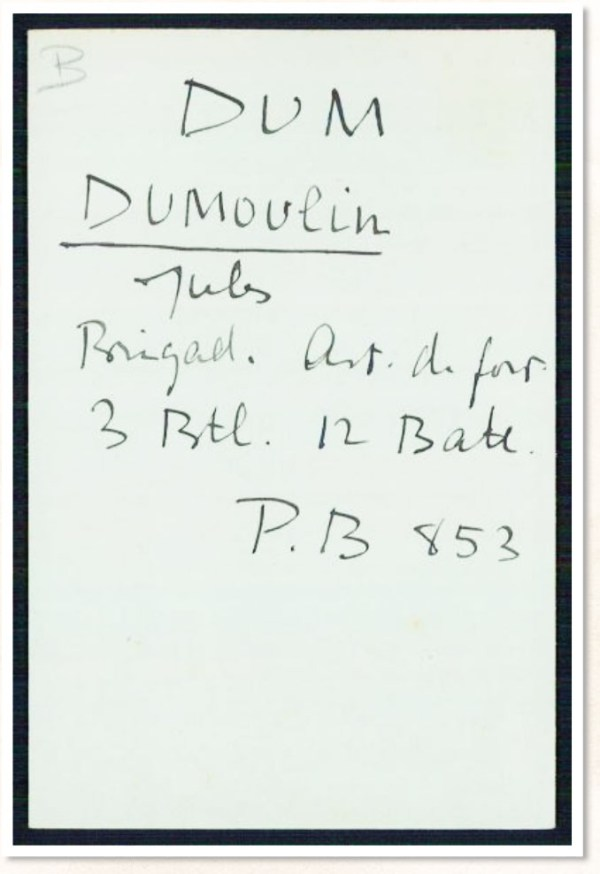 B
DUM
DUMoulin
Jules
Brigad. Art. d. for.
3 Btl. 12 Batt.
P.B 853